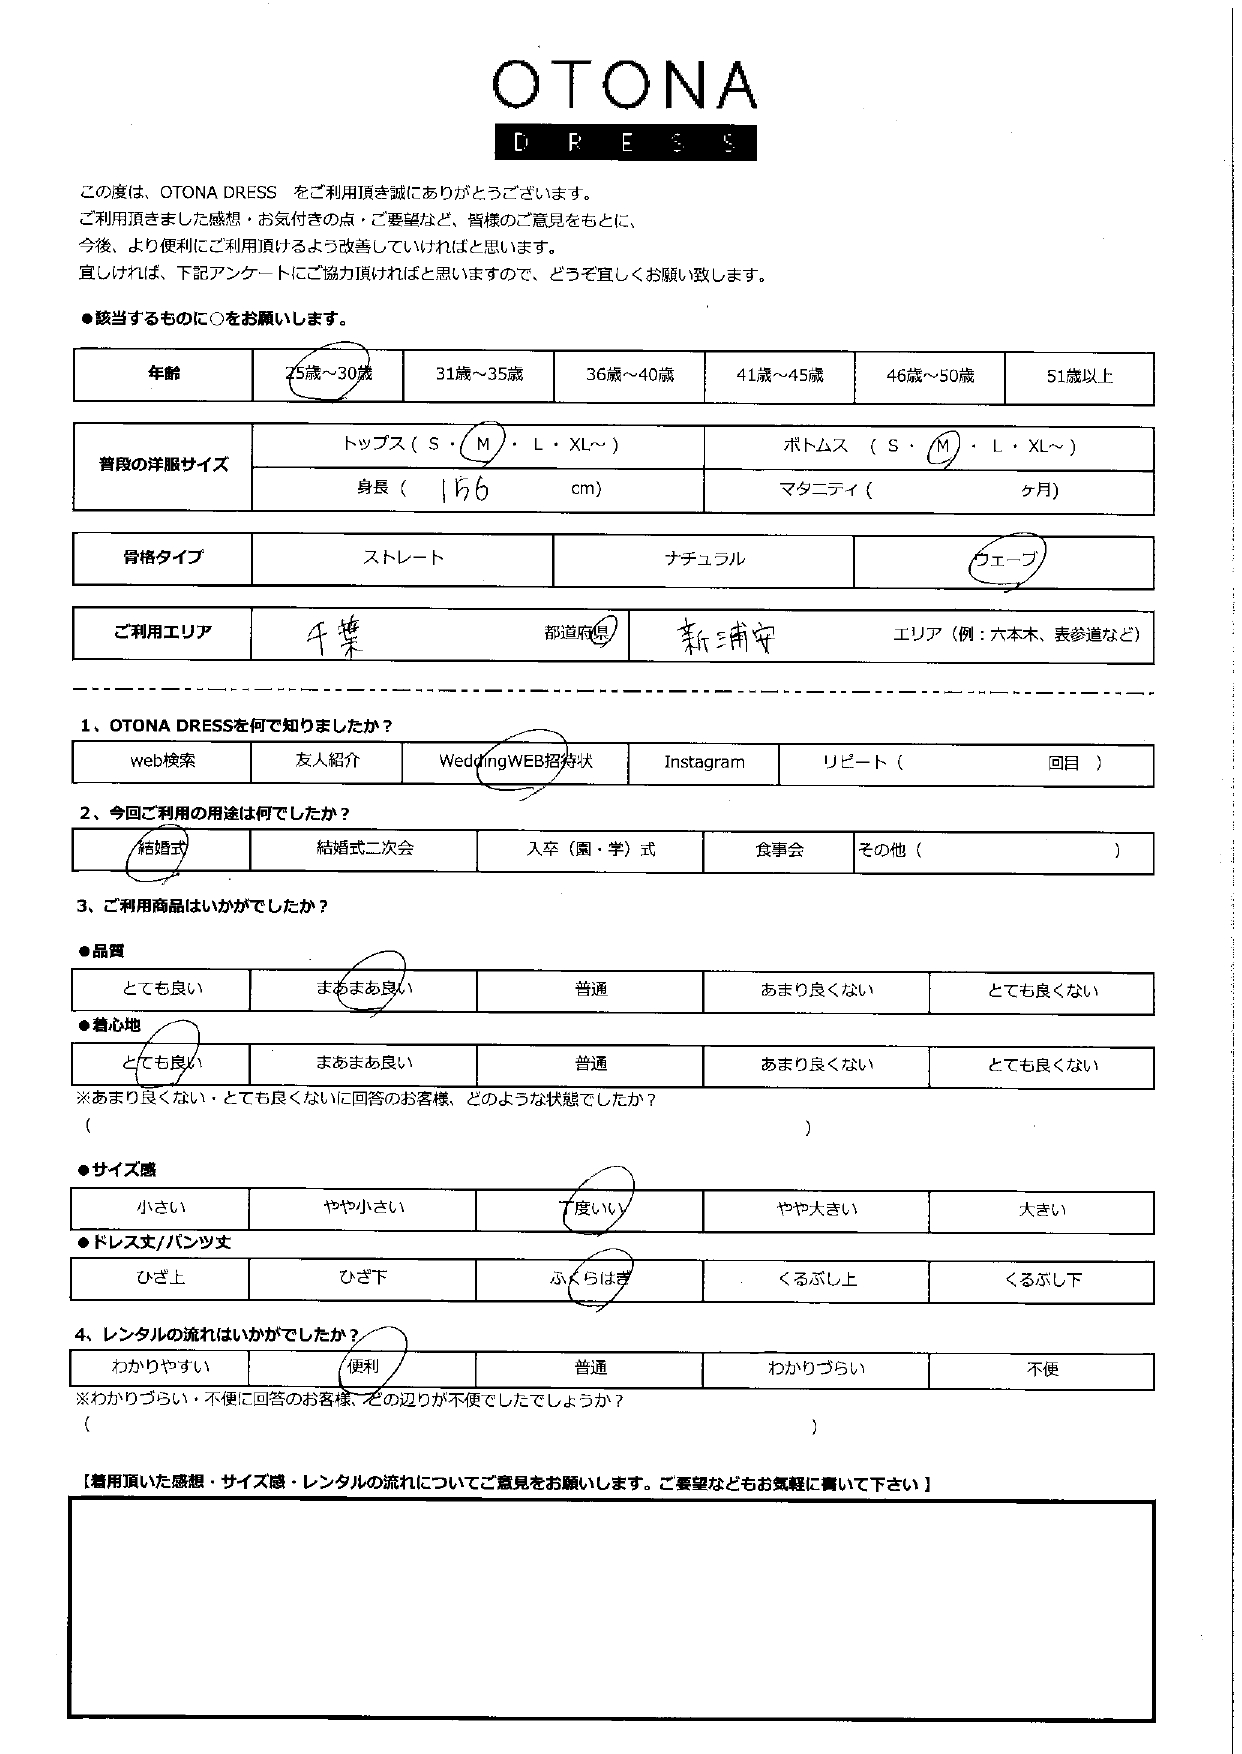 OTONA
DRESS
この度は、OTONA DRESS　をご利用頂き誠にありがとうございます。
ご利用頂きました感想・お気付きの点・ご要望など、皆様のご意見をもとに、
今後、より便利にご利用頂けるよう改善していければと思います。
宜しければ、下記アンケートにご協力頂ければと思いますので、どうぞ宜しくお願い致します。
●該当するものに○をお願いします。
年齢 25歳～30歳 31歳～35歳 36歳～40歳 41歳～45歳 46歳～50歳 51歳以上
普段の洋服サイズ
トップス ( S ・ M ・ L ・ XL～ ) ボトムス ( S ・ M ・ L ・ XL～ )
身長 ( 156 cm) マタニティ ( ヶ月)
骨格タイプ ストレート ナチュラル ウェーブ
ご利用エリア 千葉 都道府県 新浦安 エリア（例：六本木、表参道など）
1、OTONA DRESSを何で知りましたか？
web検索 友人紹介 WeddingWEB招待状 Instagram リピート（ 回目 ）
2、今回ご利用の用途は何でしたか？
結婚式 結婚式二次会 入卒（園・学）式 食事会 その他（ ）
3、ご利用商品はいかがでしたか？
●品質
とても良い まあまあ良い 普通 あまり良くない とても良くない
●着心地
とても良い まあまあ良い 普通 あまり良くない とても良くない
※あまり良くない・とても良くないに回答のお客様、どのような状態でしたか？
( )
●サイズ感
小さい やや小さい 丁度いい やや大きい 大きい
●ドレス丈/パンツ丈
ひざ上 ひざ下 ふくらはぎ くるぶし上 くるぶし下
4、レンタルの流れはいかがでしたか？
わかりやすい 便利 普通 わかりづらい 不便
※わかりづらい・不便に回答のお客様、どの辺りが不便でしたでしょうか？
( )
【着用頂いた感想・サイズ感・レンタルの流れについてご意見をお願いします。ご要望などもお気軽に書いて下さい 】